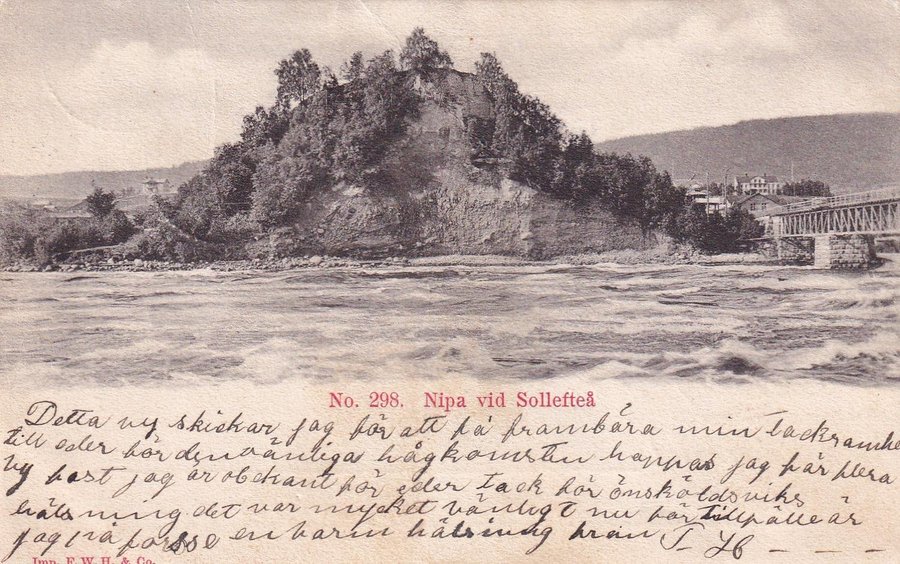 No. 298. Nipa vid Sollefteå
Detta vy skickar jag för att få frambära min tacksamhe
till eder för den vänliga hågkomsten hoppas jag får flera
vy fast jag är obekant för eder tack för önsköldsviks
hälsning det var mycket vänligt nu för tillfälle är
jag på forsse en varm hälsning från T H
Imp. F. W. H. & Co.